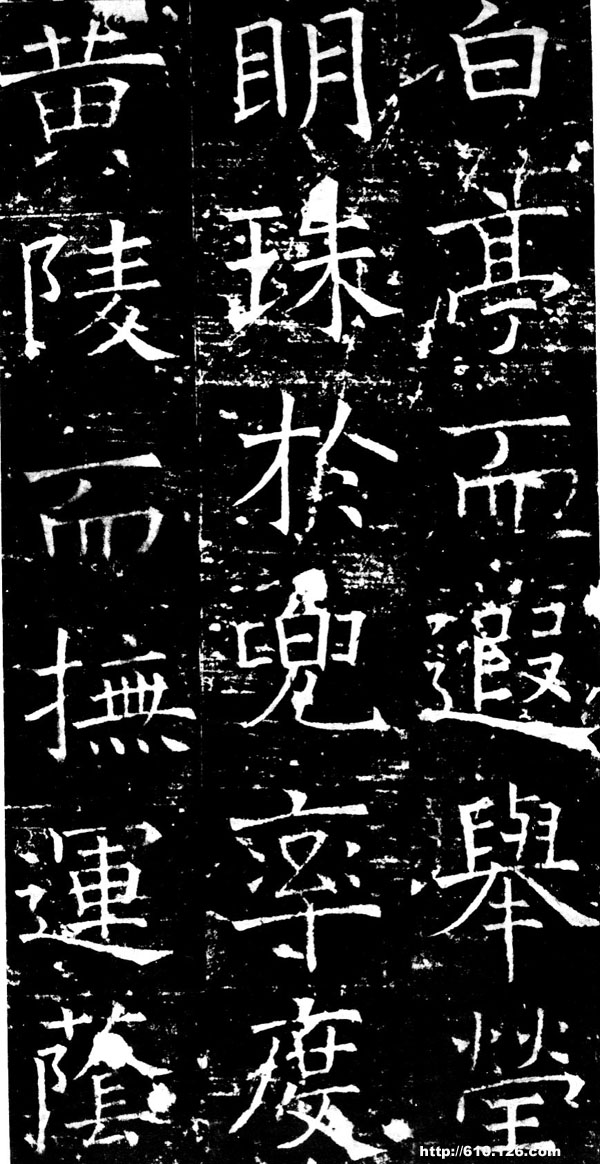 白亭而遐舉瑩
明珠於兜率度
黃陵而撫運蔭
http://616.126.com